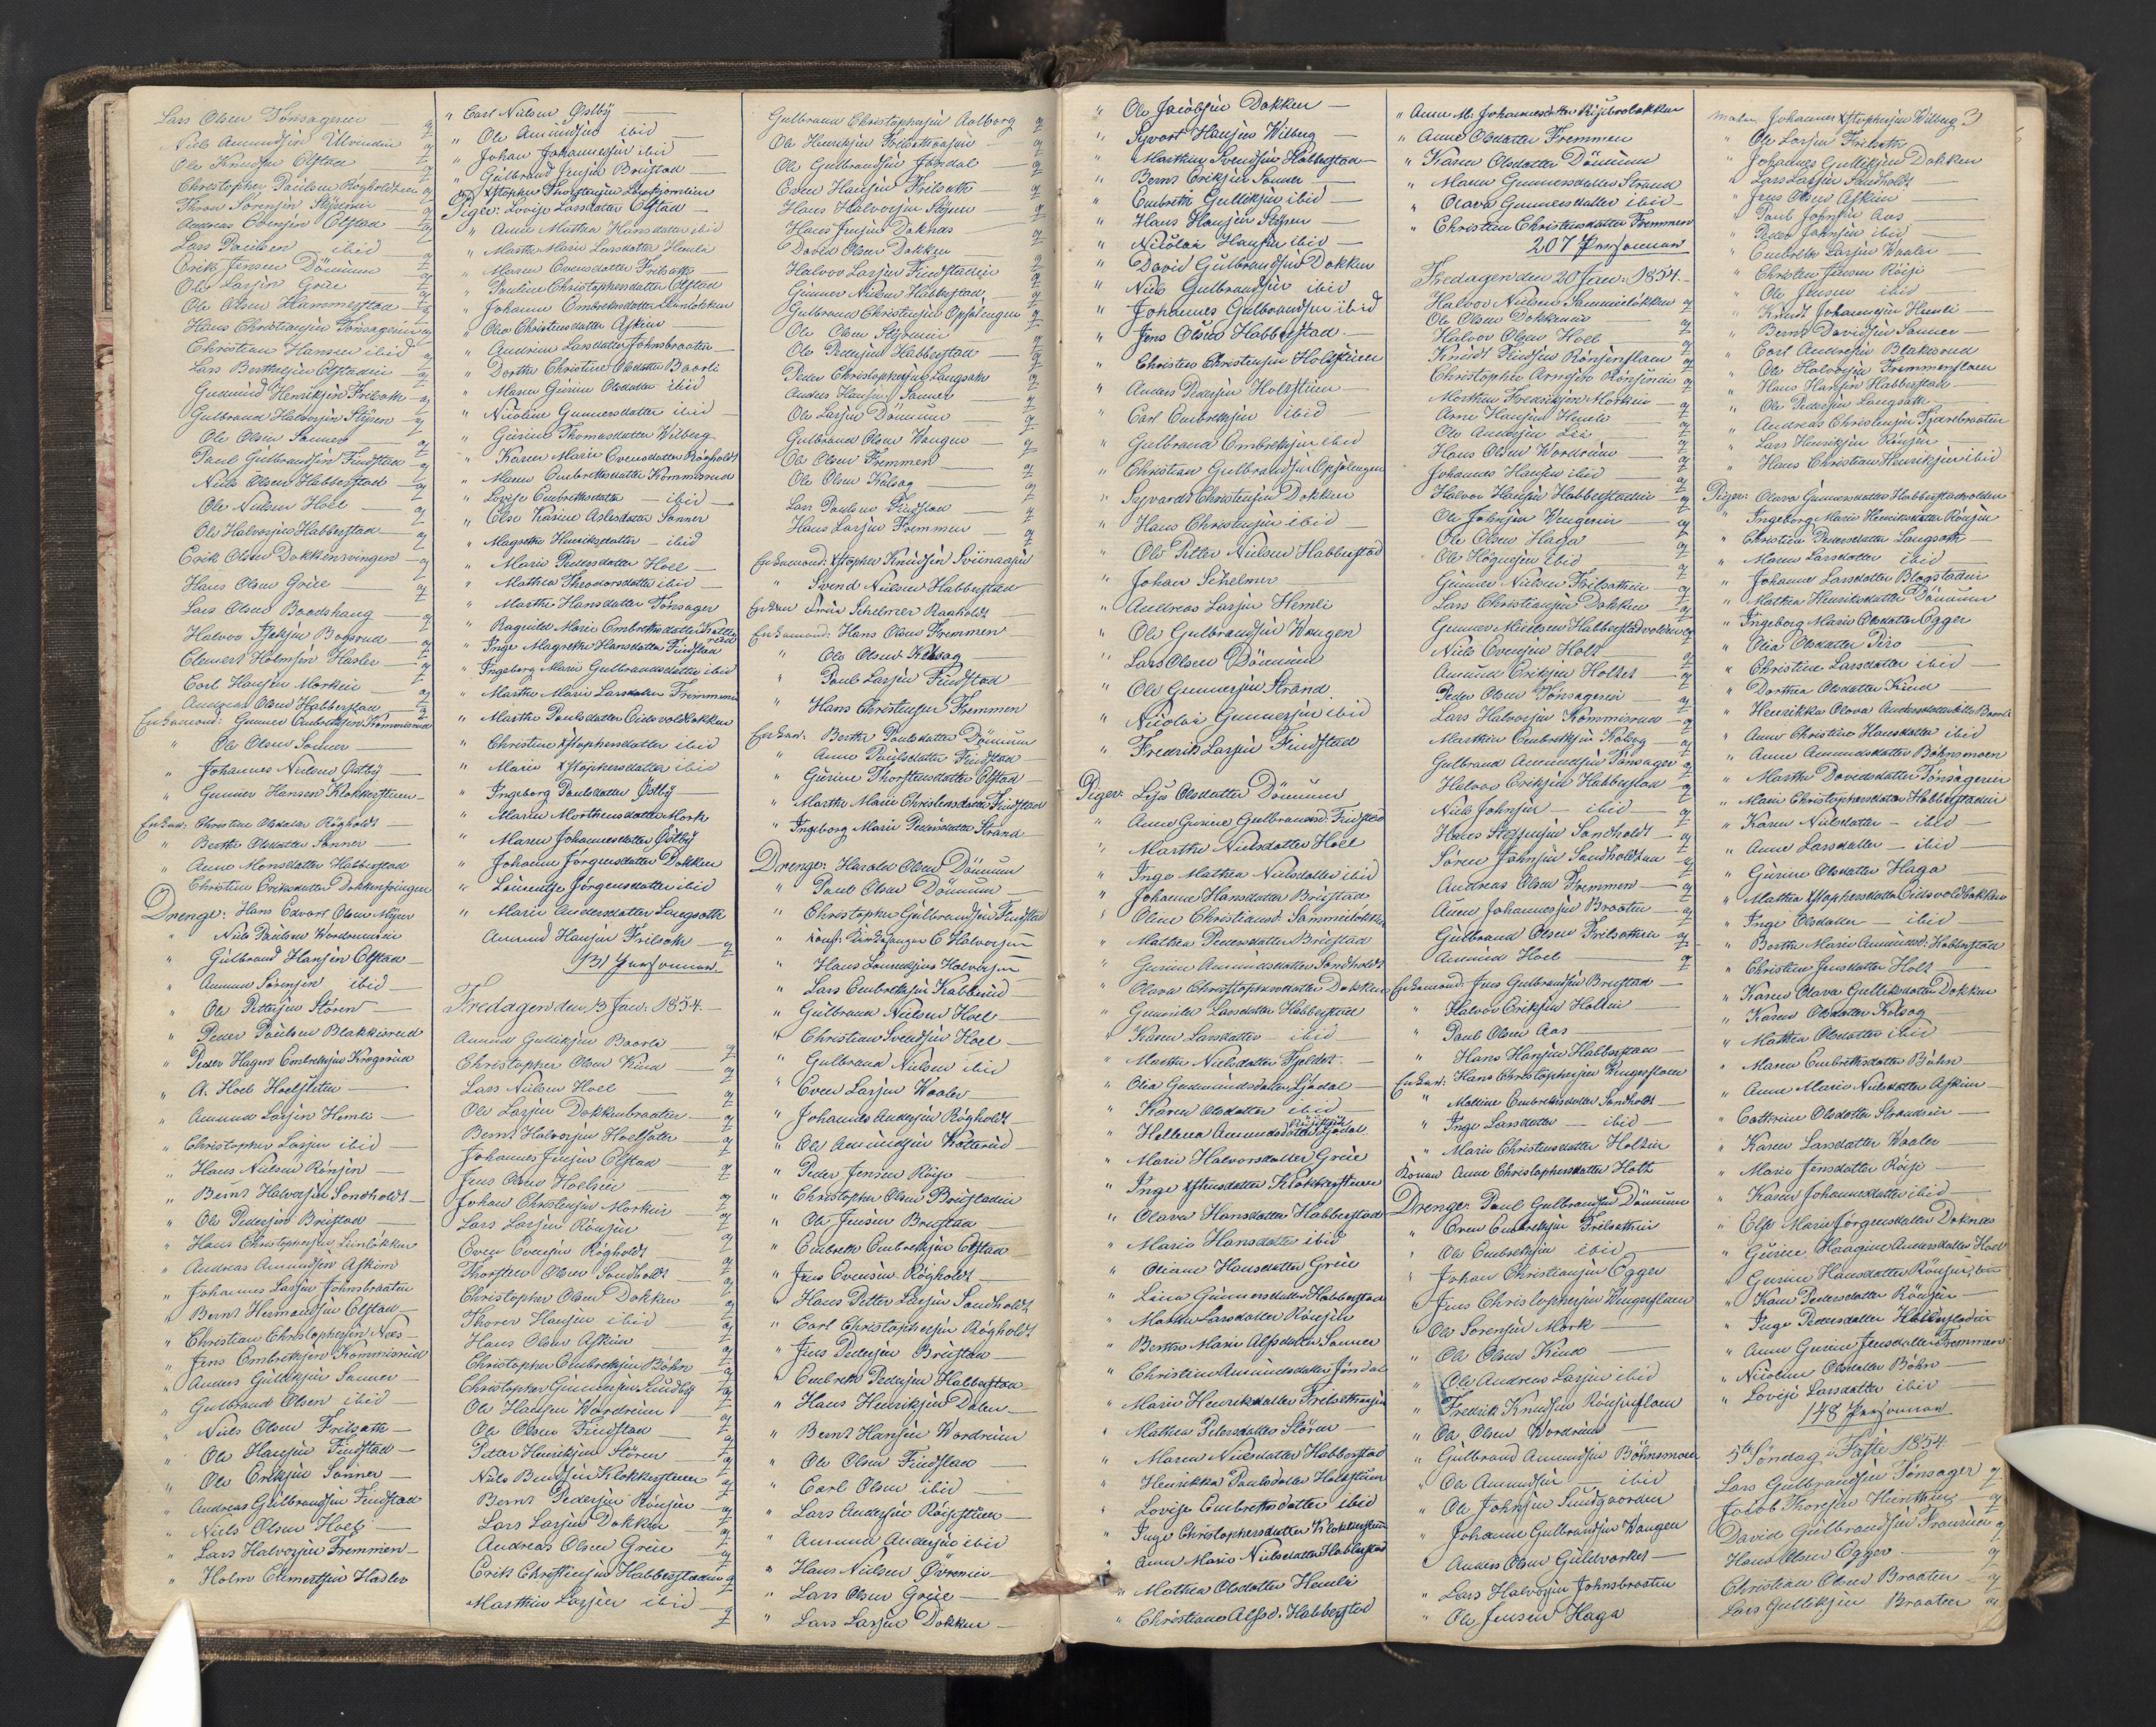 Lars Olsen Tønsageren — q
Niels Amundsen Ulvinden q
Ole Knudsen Olstad q
Christopher Paulsen Rogholdten q
Thron Sørensen Styrerie q
Andreas Evensen Olstad q
Lars Paulsen ibid q
Erik Jensen Dönnum q
Ole Larsen Greie q
Ole Olsen Hammerstad q
Hans Christiansen Tønsageren q
Christian Hansen ibid q
Lars Berthelsen Olstadeie q
Gudmund Henriksen Frilseth q
Gulbrand Halvorsen Styren q
Ole Olsen Sanner q
Paul Gulbrandsen Findstad q
Niels Olsen Habberstad q
Ole Nielsen Hoel q
Ole Halvorsen Habberstad q
Erik Olsen Dokkensvingen q
Hans Olsen Greie q
Lars Olsen Baadshaug q
Halvor Bogsrud q
Clemert Holmsen Hasler q
Carl Hansen Morkeie q
Andreas Olsen Habberstad q
Enkemænd: Gunner Embretsen Kommisrud
" Ole Olsen Sanner
" Johannes Nielsen Østby
" Gunner Hansen Klokkerstuen
Enker: Christine Olsdatter Røgholdt
" Berthe Olsdatter Sanner
" Anne Monsdatter Habberstad
Christine Eriksdatter Dokkensvingen
Drenge: Hans Edvart Olsen Myrer
" Niels Paulsen Wordrumeie
" Gulbrand Hansen Olstad
" Amund Sørensen ibid
" Ole Pettersen Støren
" Peder Paulsen Blakkisrud
" Peder Hagen Embretsen Krogsrud
" A. Hoel Hoelstuen
" Amund Larsen Hemli
" Christopher Larsen ibid
" Hans Nielsen Rønsen
" Bernt Halvorsen Sandholdt
" Ole Pedersen Brustad
" Hans Christophersen Linløkken
" Andreas Amundsen Askim
" Johannes Larsen Johnsbraaten
" Bernt Hermandsen Olstad
" Christian Christophersen Næs
" Jens Embretsen Kommisrud
" Anders Gulliksen Sanner
" Gulbrand Olsen ibid
" Niels Olsen Frilseth
" Ole Hansen Findstad
" Ole Eriksen Sanner
" Andreas Gulbrandsen Findstad
" Niels Olsen Hoel
" Lars Halvorsen Fremmen
" Holm Clemertsen Hasler
" Carl Nielsen Østby
" Ole Amundsen ibid
" Johan Johannesen ibid
" Gulbrand Jensen Brustad
" Xstopher Thorstensen
Piger: Lovise Larsdatter Olstad
" Anne Mathea Hansdatter ibid
" Marthe Marie Larsdatter Hemli
" Maren Evensdatter Frilseth
" Pauline Christophersdatter Olstad
" Johanne Embretsdatter
" Olea Christensdatter Askim
" Andrine Larsdatter Johnsbraaten
" Dorthe Christine Olsdatter Baarli
" Maren Gurine Olsdatter ibid
" Nicoline Gunnersdatter ibid
" Gurine Thomasdatter Wilberg
" Karen Marie Evensdatter Røgholdt
" Maren Embretsdatter Kommisrud
" Lovise Embretsdatter ibid
" Else Karine Aslesdatter Sanner
" Magrethe Henriksdatter ibid
" Marie Pedersdatter Hoel
" Mathea Thoresdatter ibid
" Marthe Hansdatter Tønsager
" Ragnild Marie Embretsdatter Katterud
" Inge Magrethe Hansdatter Findstad
" Ingeborg Marie Gulbrandsdatter ibid
" Marthe Marie Larsdatter Fremmen
" Marthe Paulsdatter Eidsvoldbakken
" Christine Xstophersdatter ibid
" Marie Xstophersdatter ibid
" Ingeborg Paulsdatter Østby
" Maren Morthensdatter Mork
" Maren Johannesdatter Østby
" Johanne Jørgensdatter Dokken
" Laurentze Jørgensdatter ibid
" Maren Andersdatter Langseth
Amund Hansen Frilseth q
131 Personer
Fredagen den 13 Jan. 1854.
Amund Gulliksen Baarli q
Christopher Olsen Kind q
Lars Nielsen Hoel q
Ole Larsen Dokkenbraaten q
Bernt Halvorsen Hoelsæter q
Johannes Jensen Olstad q
Jens Olsen Hoelseie q
Johan Christensen Morkeie q
Lars Larsen Rønsen q
Even Evensen Røgholdt q
Thorsten Olsen Sandholdt q
Christopher Olsen Dokken q
Thorer Hansen ibid q
Hans Olsen Askim q
Christopher Embretsen Bøhn q
Christopher Gunnersen Sundby q
Ole Hansen Wordrum q
Ole Olsen Findstad q
Petter Henriksen Støren q
Niels Bendsen Klokkerstuen q
Bernt Pedersen Rønsen q
Lars Larsen Dokken q
Andreas Olsen Greie q
Erik Christensen Habberstadeie q
Marthin Larsen ibid q
Gulbrand Christophersen Aalborg q
Ole Henriksen Frilsethaasen q
Ole Gulbrandsen Jøndal q
Even Hansen Frilseth q
Hans Halvorsen Styren q
Hans Jensen Doknæs q
David Olsen Dokken q
Halvor Larsen Findstadeie q
Gunner Nielsen Habberstad q
Gulbrand Christensen Opsalengen q
Ole Olsen Styrerie q
Ole Pedersen Habberstad q
Peder Christophersen Langseth q
Anders Hansen Sanner q
Ole Larsen Dönnum q
Gulbrand Olsen Wangen q
Ole Olsen Fremmen q
Ole Olsen Kolsag q
Lars Paulsen Findstad q
Hans Larsen Fremmen q
Enkemænd: Xstopher Knudsen Sviinaasen
" Svend Nielsen Habberstad
Enkefrue Schelmer Raaholdt
Enkemænd: Hans Olsen Fremmen
" Ole Olsen Kolsag
" Paul Larsen Findstad
" Hans Christensen Fremmen
Enker: Berthe Paulsdatter Dönnum
" Anne Paulsdatter Findstad
" Gurine Thorstensdatter Olstad
" Marthe Marie Christensdatter Findstad
" Ingeborg Marie Pedersdatter Strand
Drenge: Harald Olsen Dönnum
" Paul Olsen Dönnum
" Christopher Gulbrandsen Findstad
" Kirkesanger C Halvorsen
" Hans Lauredsius Halvorsen
" Lars Embretsen Katterud
" Gulbrand Nielsen Hoel
" Christian Svendsen Hoel
" Gulbrand Nielsen ibid
" Even Larsen Waaler
" Johannes Andersen Røgholdt
" Ole Amundsen Katterud
" Peder Jensen Røise
" Christopher Olsen Brustadeie
" Ole Jensen Brustad
" Embreth Embretsen Olstad
" Jens Evensen Røgholdt
" Hans Petter Larsen Sandholdt
" Carl Christophersen Røgholdt
" Jens Pedersen Brustad
" Embreth Pedersen Habberstad
" Hans Henriksen Dalen
" Bernt Hansen Wordrum
" Ole Olsen Findstad
" Carl Olsen ibid
" Lars Andersen Røisstuen
" Amund Andersen ibid
" Hans Nielsen Øvrenie
" Lars Olsen Greie
" Lars Larsen Dokken
" Ole Jacobsen Dokken
" Syvert Hansen Wilberg
" Marthin Svendsen Habberstad
" Bernt Eriksen Sanner
" Embreth Gulliksen ibid
" Hans Hansen Styren
" Nicolai Hansen ibid
" David Gulbrandsen Dokken
" Niels Gulbrandsen ibid
" Johannes Gulbrandsen ibid
" Jens Olsen Habberstad
" Christen Christensen Holsstuen
" Anders Pedersen Holsstuen
" Carl Embretsen ibid
" Gulbrand Embretsen ibid
" Christian Gulbrandsen Opsalengen
" Syvardt Christensen Dokken
" Hans Christensen ibid
" Ole Petter Nielsen Habberstad
" Johan Schelmer
" Andreas Larsen Hemli
" Ole Gulbrandsen Wangen
" Lars Olsen Dönnum
" Ole Gunnersen Strand
" Nicolai Gunnersen ibid
" Fredrik Larsen Findstad
Piger: Lise Olsdatter Dönnum
" Anne Gurine Gulbrandsd. Findstad
" Marthe Nielsdatter Hoel
" Inge Mathea Nielsdatter ibid
" Johanne Hansdatter Brustad
" Oline Christiansd. Sammerløkken
" Mathea Pedersdatter Brustad
" Gurine Amundsdatter Sandholdt
" Olava Christophersdatter Dokken
" Gunnild Larsdatter Habberstad
" Karen Larsdatter ibid
" Marthe Nielsdatter Fjeldet
" Olia Gudmundsdatter Ljødal
" Karen Olsdatter ibid
" Hellena Amundsdatter Ljødal
" Marie Halvorsdatter Greie
" Inge Xstensdatter Klokkerstuen
" Olava Hansdatter Habberstad
" Marie Hansdatter ibid
" Oliane Hansdatter Greie
" Lina Gunnersdatter Habberstad
" Marthe Larsdatter Rønsen
" Berthe Marie Alfsdatter Sanner
" Christine Amundsdatter Jøndal
" Marie Henriksdatter Frilsethaasen
" Mathea Petersdatter Støren
" Maren Nielsdatter Habberstad
" Henrikka Paulsdatter Holsstuen
" Lovise Embretsdatter ibid
" Inge Christophersdatter Klokkerstuen
" Anne Marie Nielsdatter Habberstad
" Mathea Olsdatter Hemli
" Christiane Alfsd. Habberstad
" Anne M. Johannesdatter
" Anne Olsdatter Fremmen
" Karen Olsdatter Dönnum
" Maren Gunnersdatter Strand
" Olava Gunnersdatter ibid
" Christine Christensdatter Fremmen
207 Personer
Fredagen den 20 Jan. 1854.
Halvor Nielsen Sammerløkken q
Ole Olsen Dokkeneie q
Halvor Olsen Hoel q
Knudt Findsen Rønsenflaen q
Christopher Arnesen Rønseneie q
Morthen Fredriksen Morkeie q
Arne Hansen Hemli q
Ole Andersen Lie q
Hans Olsen Wordrum q
Johannes Hansen ibid q
Halvor Hansen Habberstadeie q
Ole Johnsen Wengereie q
Ole Olsen Haga q
Ole Høgnesen ibid q
Gunner Nielsen Frilsetheie q
Lars Christiansen Dokken q
Gunner Nielsen Habberstadvolden q
Niels Evensen Holt q
Amund Eriksen Holtet q
Peder Olsen Tønsagereie q
Lars Halvorsen Kommisrud q
Marthin Embretsen Kolsag q
Gulbrand Amundsen Tønsager q
Halvor Eriksen Habberstad q
Niels Johnsen ibid q
Hans Steffensen Sandholdt q
Søren Johnsen Sandholdten q
Andreas Olsen Fremmen q
Amund Johannesen Braaten q
Gulbrand Olsen Frilsetheie q
Amund Hoel q
Enkemænd: Jens Gulbrandsen Brustad
" Halvor Eriksen Holteie
" Paul Olsen Aas
" Hans Hansen Habberstad
Enker: Hans Christophersen Wengerflaen
" Mattine Embretsdatter Sandholdt
" Inge Larsdatter ibid
" Marie Christensdatter Holteie
Konen Anne Christophersdatter Holt
Drenge: Paul Gulbrandsen Dönnum
" Even Embretsen Frilsetheie
" Ole Embretsen ibid
" Johan Christiansen Egger
" Jens Christophersen Wengerflaen
" Ole Sørensen Mork
" Ole Olsen Kind
" Ole Andreas Larsen ibid
" Fredrik Knudsen Rønsenflaen
" Ole Olsen Wordrum
" Gulbrand Amundsen Bøhnsmoen
" Ole Amundsen ibid
" Ole Johnsen Sundgaarden
" Johanne Gulbrandsen Wangen
" Anders Olsen Guldværket
" Lars Halvorsen Johnsbraaten
" Ole Jensen Haga
3
Maler Johannes Xstophersen Wilberg
" Ole Larsen Frilseth
" Johannes Gulliksen Dokken
" Lars Larsen Sandholdt
" Jens Olsen Askim
" Paul Johnsen Aas
" Peder Johnsen ibid
" Embreth Larsen Waaler
" Christen Jensen Røise
" Ole Jensen ibid
" Knudt Johannesen Hemli
" Bernt Davidsen Sanner
" Carl Andresen Blakisrud
" Ole Halvorsen Fremmenflaen
" Hans Hansen Habberstad
" Ole Pedersen Langseth
" Andreas Christensen Tjærebraaten
" Lars Henriksen Rønsen
" Hans Christian Henriksen ibid
Piger: Olava Gunnersdatter Habberstadvolden
" Ingeborg Marie Henriksdatter Rønsen
" Christine Pedersdatter Langseth
" Maren Larsdatter ibid
" Johanne Larsdatter Blegstadeie
" Mathea Henriksdatter Dönnum
" Ingeborg Marie Olsdatter Egger
" Olia Olsdatter Piro
" Christine Larsdatter ibid
" Dorthea Olsdatter Kind
" Henrikka Olava Andersdatter Baarli
" Anne Christine Hansdatter ibid
" Anne Amundsdatter Bøhnsmoen
" Marthe Davidsdatter Tønsageren
" Marie Christophersdatter Habberstadeie
" Karen Nielsdatter ibid
" Anne Larsdatter ibid
" Gurine Olsdatter Haga
" Mathea Xstophersdatter Eidsvoldbakken
" Inge Olsdatter ibid
" Berthe Marie Amundsd. Habberstad
" Christine Jensdatter Holt
" Karen Olava Gulliksdatter Dokken
" Karen Olsdatter Kolsag
" Mathea Olsdatter ibid
" Maren Embretsdatter Bøhn
" Anne Marie Nielsdatter Askim
" Cathrine Olsdatter Strandeie
" Karen Larsdatter Waaler
" Marie Jensdatter Røise
" Karen Johannesdatter ibid
" Else Marie Jørgensdatter Doknæs
" Gurine Haagine Andersdatter Hoel
" Gurine Hansdatter Rønsen
" Karen Pedersdatter Rønsen
" Inge Pedersdatter Habberstadeie
" Anne Gurine Jensdatter Fremmen
" Nicoline Olsdatter Bøhn
" Lovise Larsdatter ibid
178 Personer
5te Søndag i Faste 1854
Lars Gulbrandsen Tønsager q
Jacob Thoresen q
David Gulbrandsen q
Hans Olsen Egger q
Christian Olsen Braaten q
Lars Gulliksen Braaten q